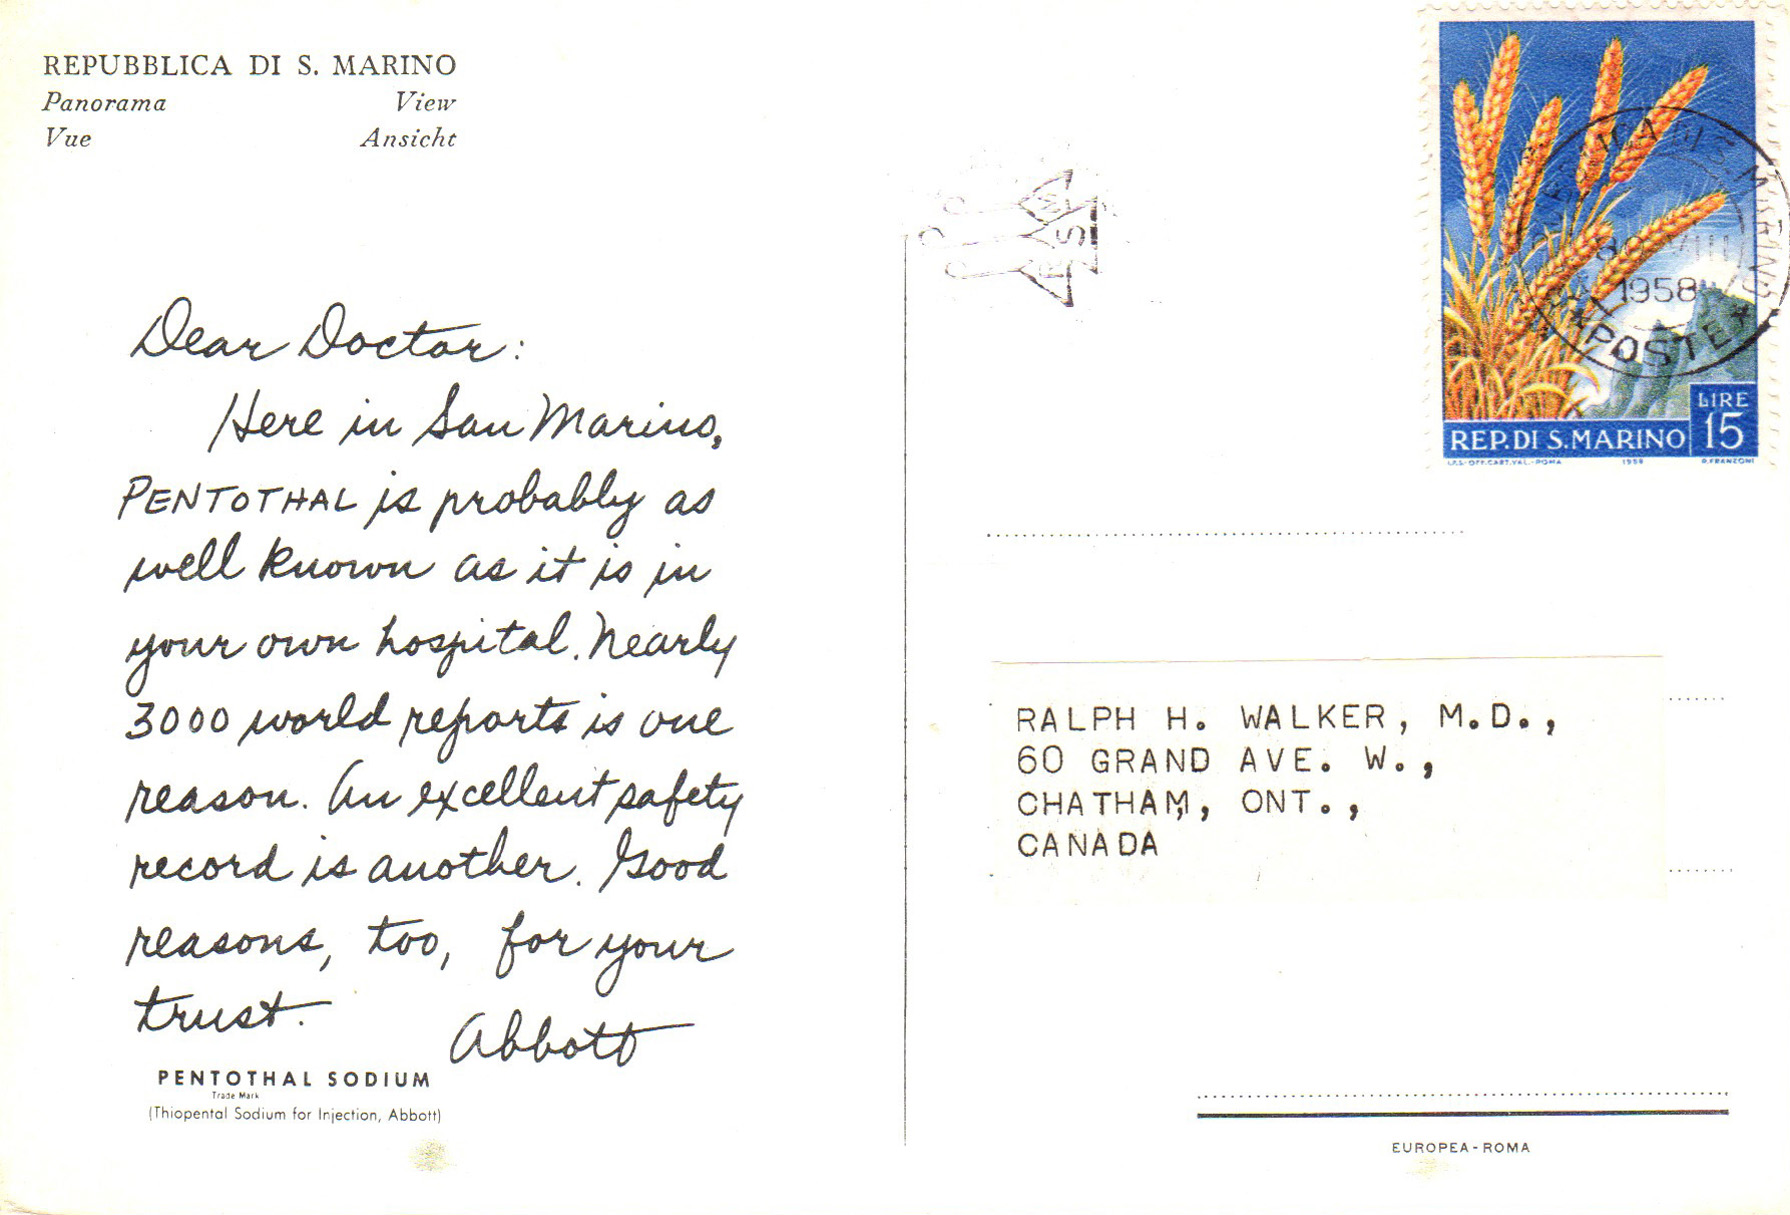 REPUBBLICA DI S. MARINO
Panorama View
Vue Ansicht
Dear Doctor:
Here in San Marino,
PENTOTHAL is probably as
well known as it is in
your own hospital. Nearly
3000 world reports is one
reason. An excellent safety
record is another. Good
reasons, too, for your
trust.
Abbott
PENTOTHAL SODIUM
Trade Mark
(Thiopental Sodium for Injection, Abbott)
DI S. MARINO
1958
POSTE
LIRE
15
REP. DI S. MARINO
I.P.S.-OFF. CART. VAL.-ROMA 1958 R. FRANZONI
RALPH H. WALKER, M.D.,
60 GRAND AVE. W.,
CHATHAM, ONT.,
CANADA
EUROPEA-ROMA